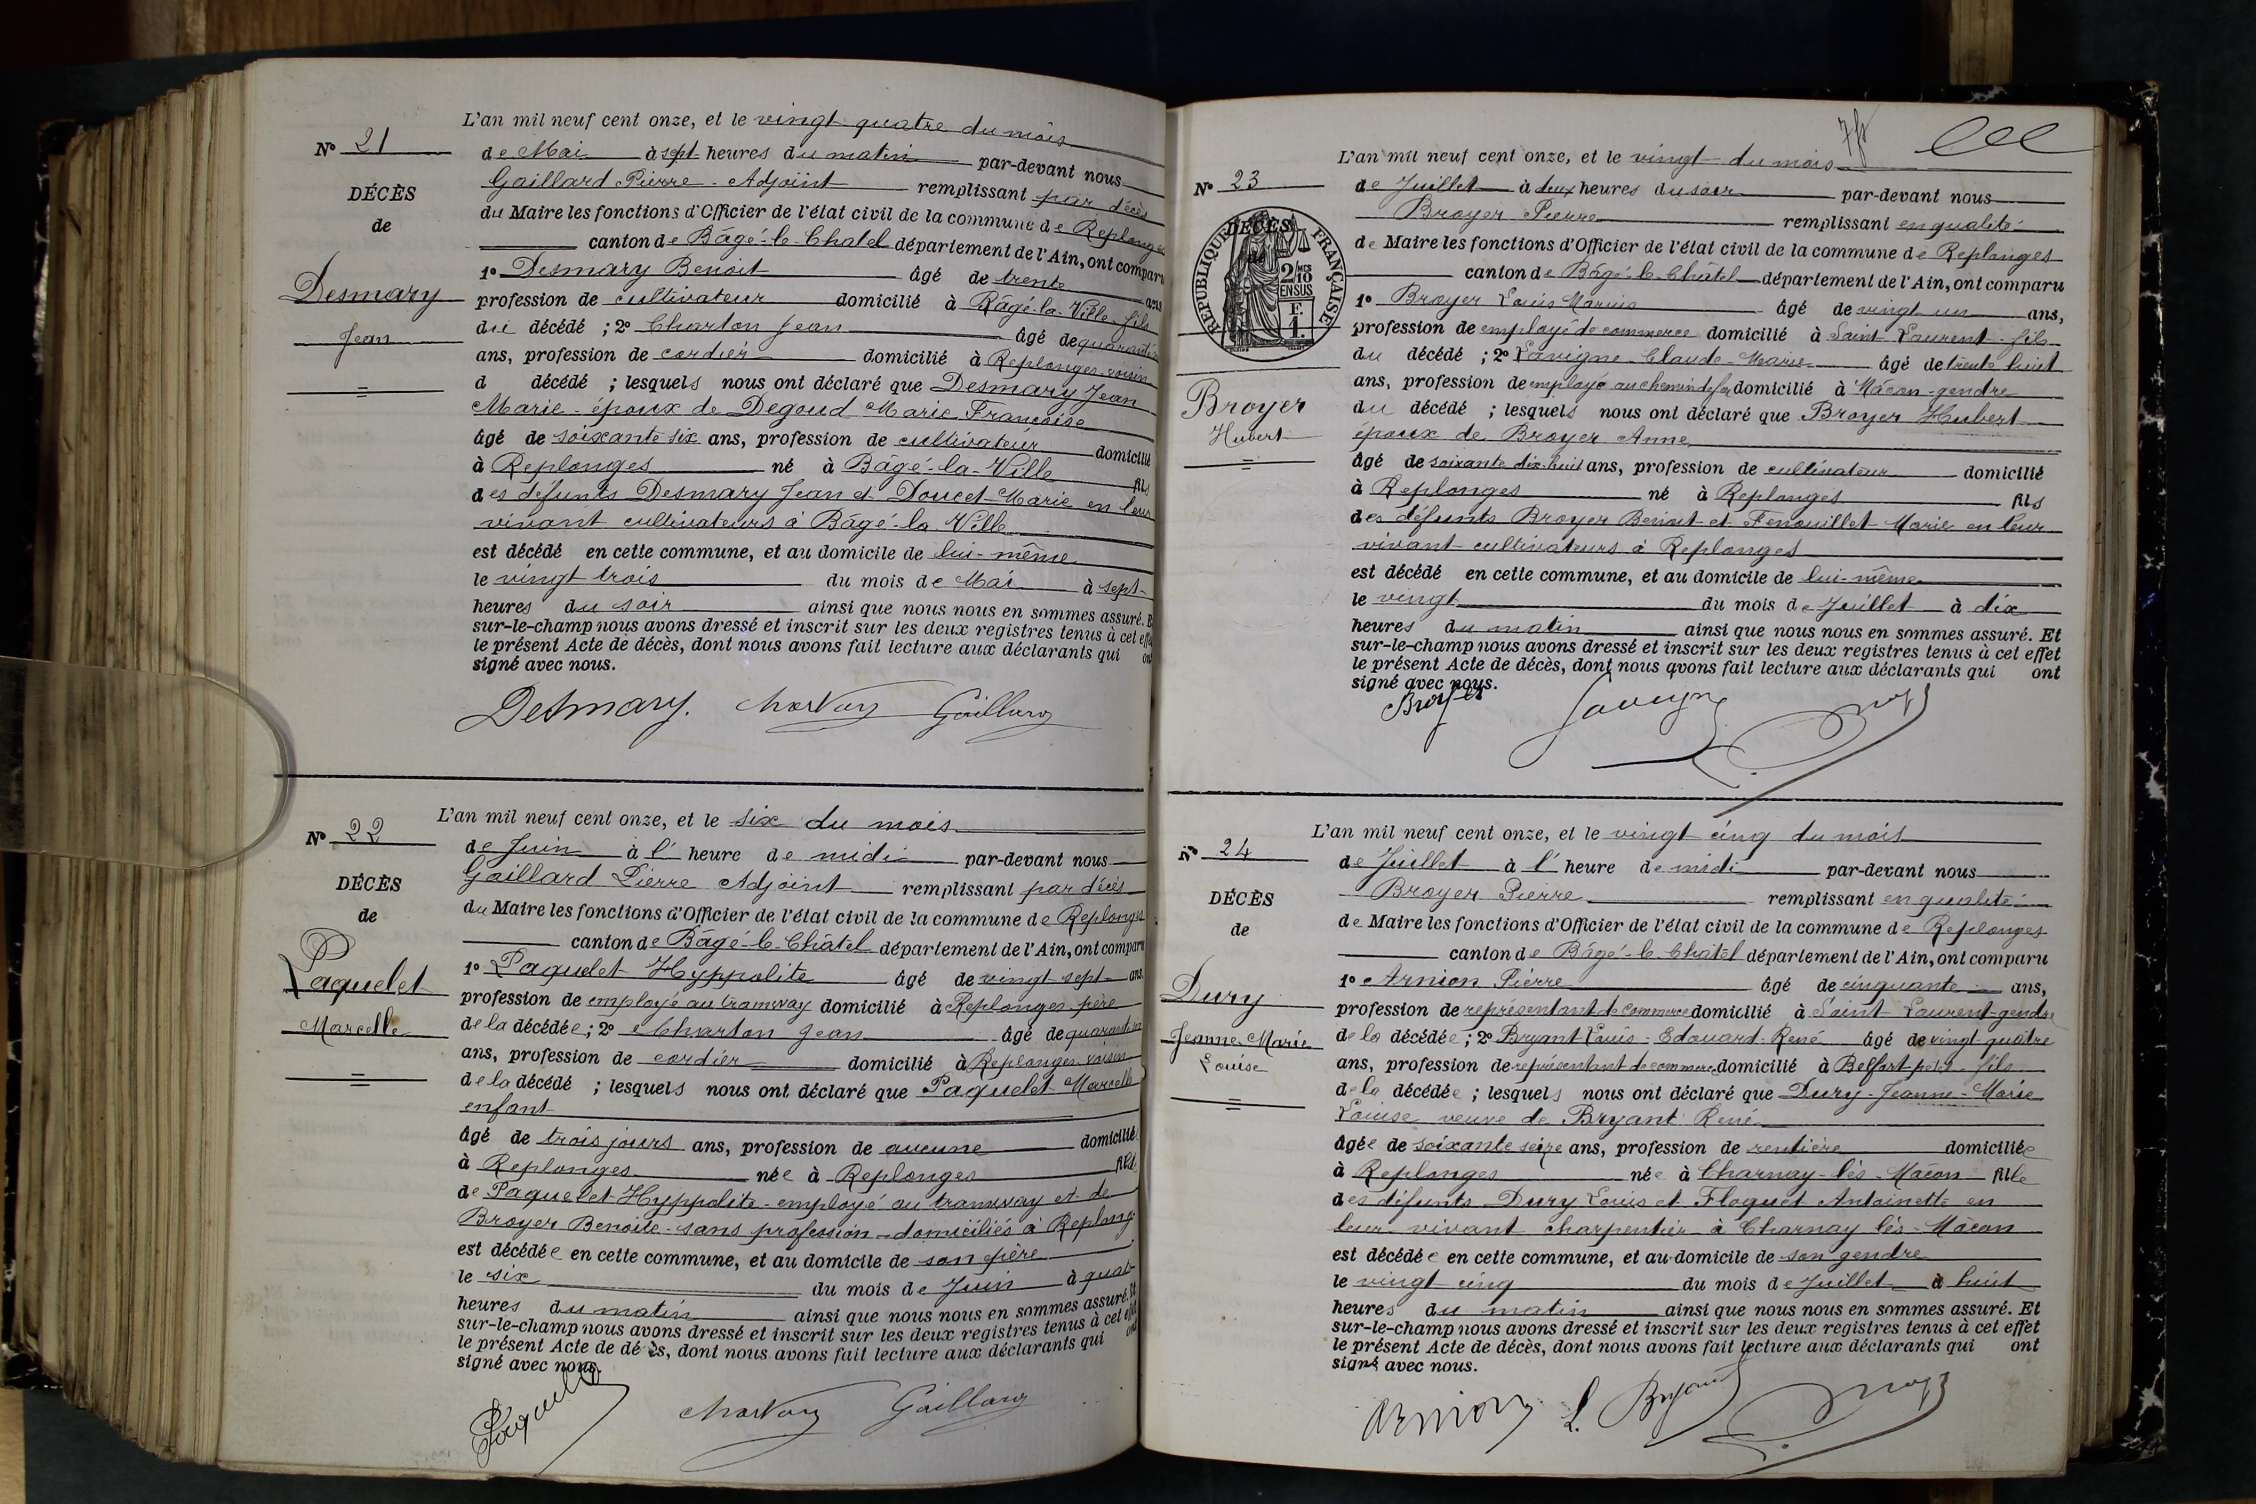 L'an mil neuf cent onze, et le vingt quatre du mois
N° 21
de Mai à sept heures du matin par-devant nous
DÉCÈS
Gaillard Pierre - Adjoint remplissant par décès
de
du Maire les fonctions d'Officier de l'état civil de la commune de Replonges
canton de Bâgé-le-Chatel département de l'Ain, ont comparu
Desmary
Jean
1° Desmary Benoit âgé de trente ans
profession de cultivateur domicilié à Bâgé-la-Ville fils
du décédé ; 2° Charton Jean âgé de
ans, profession de cordier domicilié à Replonges voisin
d décédé ; lesquels nous ont déclaré que Desmary Jean
Marie - époux de Degoud Marie Françoise
âgé de soixante six ans, profession de cultivateur domicilié
à Replonges né à Bâgé-la-Ville fils
des défunts Desmary Jean et Doucet Marie en leur
vivant cultivateurs à Bâgé-la Ville
est décédé en cette commune, et au domicile de lui-même
le vingt trois du mois de Mai à sept
heures du soir ainsi que nous nous en sommes assuré. E
sur-le-champ nous avons dressé et inscrit sur les deux registres tenus à cet effe
le présent Acte de décès, dont nous avons fait lecture aux déclarants qui ont
signé avec nous.
Desmary. Charton Gaillard
L'an mil neuf cent onze, et le six du mois
N° 22
de Juin à l' heure de midi par-devant nous
DÉCÈS
Gaillard Pierre Adjoint remplissant par décès
de
du Maire les fonctions d'Officier de l'état civil de la commune de Replonges
canton de Bâgé-le-Châtel département de l'Ain, ont comparu
Paquelet
Marcelle
1° Paquelet Hyppolite âgé de vingt sept ans
profession de employé au tramway domicilié à Replonges père
de la décédée ; 2° Charton Jean âgé de
ans, profession de cordier domicilié à Replonges voisin
de la décédé ; lesquels nous ont déclaré que Paquelet Marcelle
enfant
âgé de trois jours ans, profession de aucune domicilié
à Replonges née à Replonges fille
de Paquelet Hyppolite - employé au tramway et de
Broyer Benoite - sans profession - domiciliés à Replong
est décédée en cette commune, et au domicile de son père
le six du mois de Juin à quat
heures du matin ainsi que nous nous en sommes assuré. Et
sur-le-champ nous avons dressé et inscrit sur les deux registres tenus à cet effet
le présent Acte de décès, dont nous avons fait lecture aux déclarants qui ont
signé avec nous.
Paquelet Charton Gaillard
L'an mil neuf cent onze, et le vingt du mois
N° 23
de Juillet à deux heures du soir par-devant nous
DÉCÈS
de
Broyer Pierre remplissant en qualité
de Maire les fonctions d'Officier de l'état civil de la commune de Replonges
canton de Bâgé-le-Châtel département de l'Ain, ont comparu
RÉPUBLIQUE FRANÇAISE
2/10 EN SUS
1 F.
Broyer
Hubert
1° Broyer Louis Marius âgé de vingt un ans,
profession de employé de commerce domicilié à Saint Laurent - fils
du décédé ; 2° Lavigne Claude Marie âgé de trente huit
ans, profession de employé au chemin de fer domicilié à Mâcon - gendre
du décédé ; lesquels nous ont déclaré que Broyer Hubert
époux de Broyer Anne
âgé de soixante dix-huit ans, profession de cultivateur domicilié
à Replonges né à Replonges fils
des défunts Broyer Benoit et Fenouillet Marie en leur
vivant cultivateurs à Replonges
est décédé en cette commune, et au domicile de lui-même
le vingt du mois de Juillet à dix
heures du matin ainsi que nous nous en sommes assuré. Et
sur-le-champ nous avons dressé et inscrit sur les deux registres tenus à cet effet
le présent Acte de décès, dont nous avons fait lecture aux déclarants qui ont
signé avec nous.
Broyer Lavigne Broyer
L'an mil neuf cent onze, et le vingt cinq du mois
N° 24
de Juillet à l' heure de midi par-devant nous
DÉCÈS
Broyer Pierre remplissant en qualité
de
de Maire les fonctions d'Officier de l'état civil de la commune de Replonges
canton de Bâgé-le-Châtel département de l'Ain, ont comparu
Dury
Jeanne Marie
Louise
1° Arnion Pierre âgé de cinquante ans,
profession de représentant de commerce domicilié à Saint Laurent - gendre
de la décédée ; 2° Bryant Louis-Edouard-René âgé de vingt quatre
ans, profession de représentant de commerce domicilié à Belfort petit-fils
de la décédée ; lesquels nous ont déclaré que Dury - Jeanne - Marie
Louise veuve de Bryant René
âgée de soixante seize ans, profession de rentière domiciliée
à Replonges née à Charnay-lès-Mâcon fille
des défunts Dury Louis et Floquet Antoinette en
leur vivant charpentier à Charnay lès-Mâcon
est décédée en cette commune, et au domicile de son gendre
le vingt cinq du mois de Juillet à huit
heures du matin ainsi que nous nous en sommes assuré. Et
sur-le-champ nous avons dressé et inscrit sur les deux registres tenus à cet effet
le présent Acte de décès, dont nous avons fait lecture aux déclarants qui ont
signé avec nous.
Arnion L. Bryant Broyer